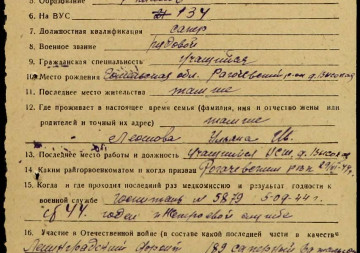 5. Образование
6. На ВУС № 134
7. Должностная квалификация сапер
8. Военное звание рядовой
9. Гражданская специальность учащийся
10. Место рождения обл. Рогачевский р-он д. Высокая
11. Последнее место жительства там же
12. Где проживает в настоящее время семья (фамилия, имя и отчество жены или
там же
родителей и точный их адрес)
Леонова Ив.
13. Последнее место работы и должность учащийся д. Высокая
14. Каким райгорвоенкоматом и когда призван Рогачевским рвк
15. Когда и где проходил последний раз медкомиссию и результат годности к
военной службе госпиталь № 5879 5.09.44 г.
44 годен строевой службе
16. Участие в Отечественной войне (в составе какой последней части и в качестве
Ленинградский фронт 189 саперный